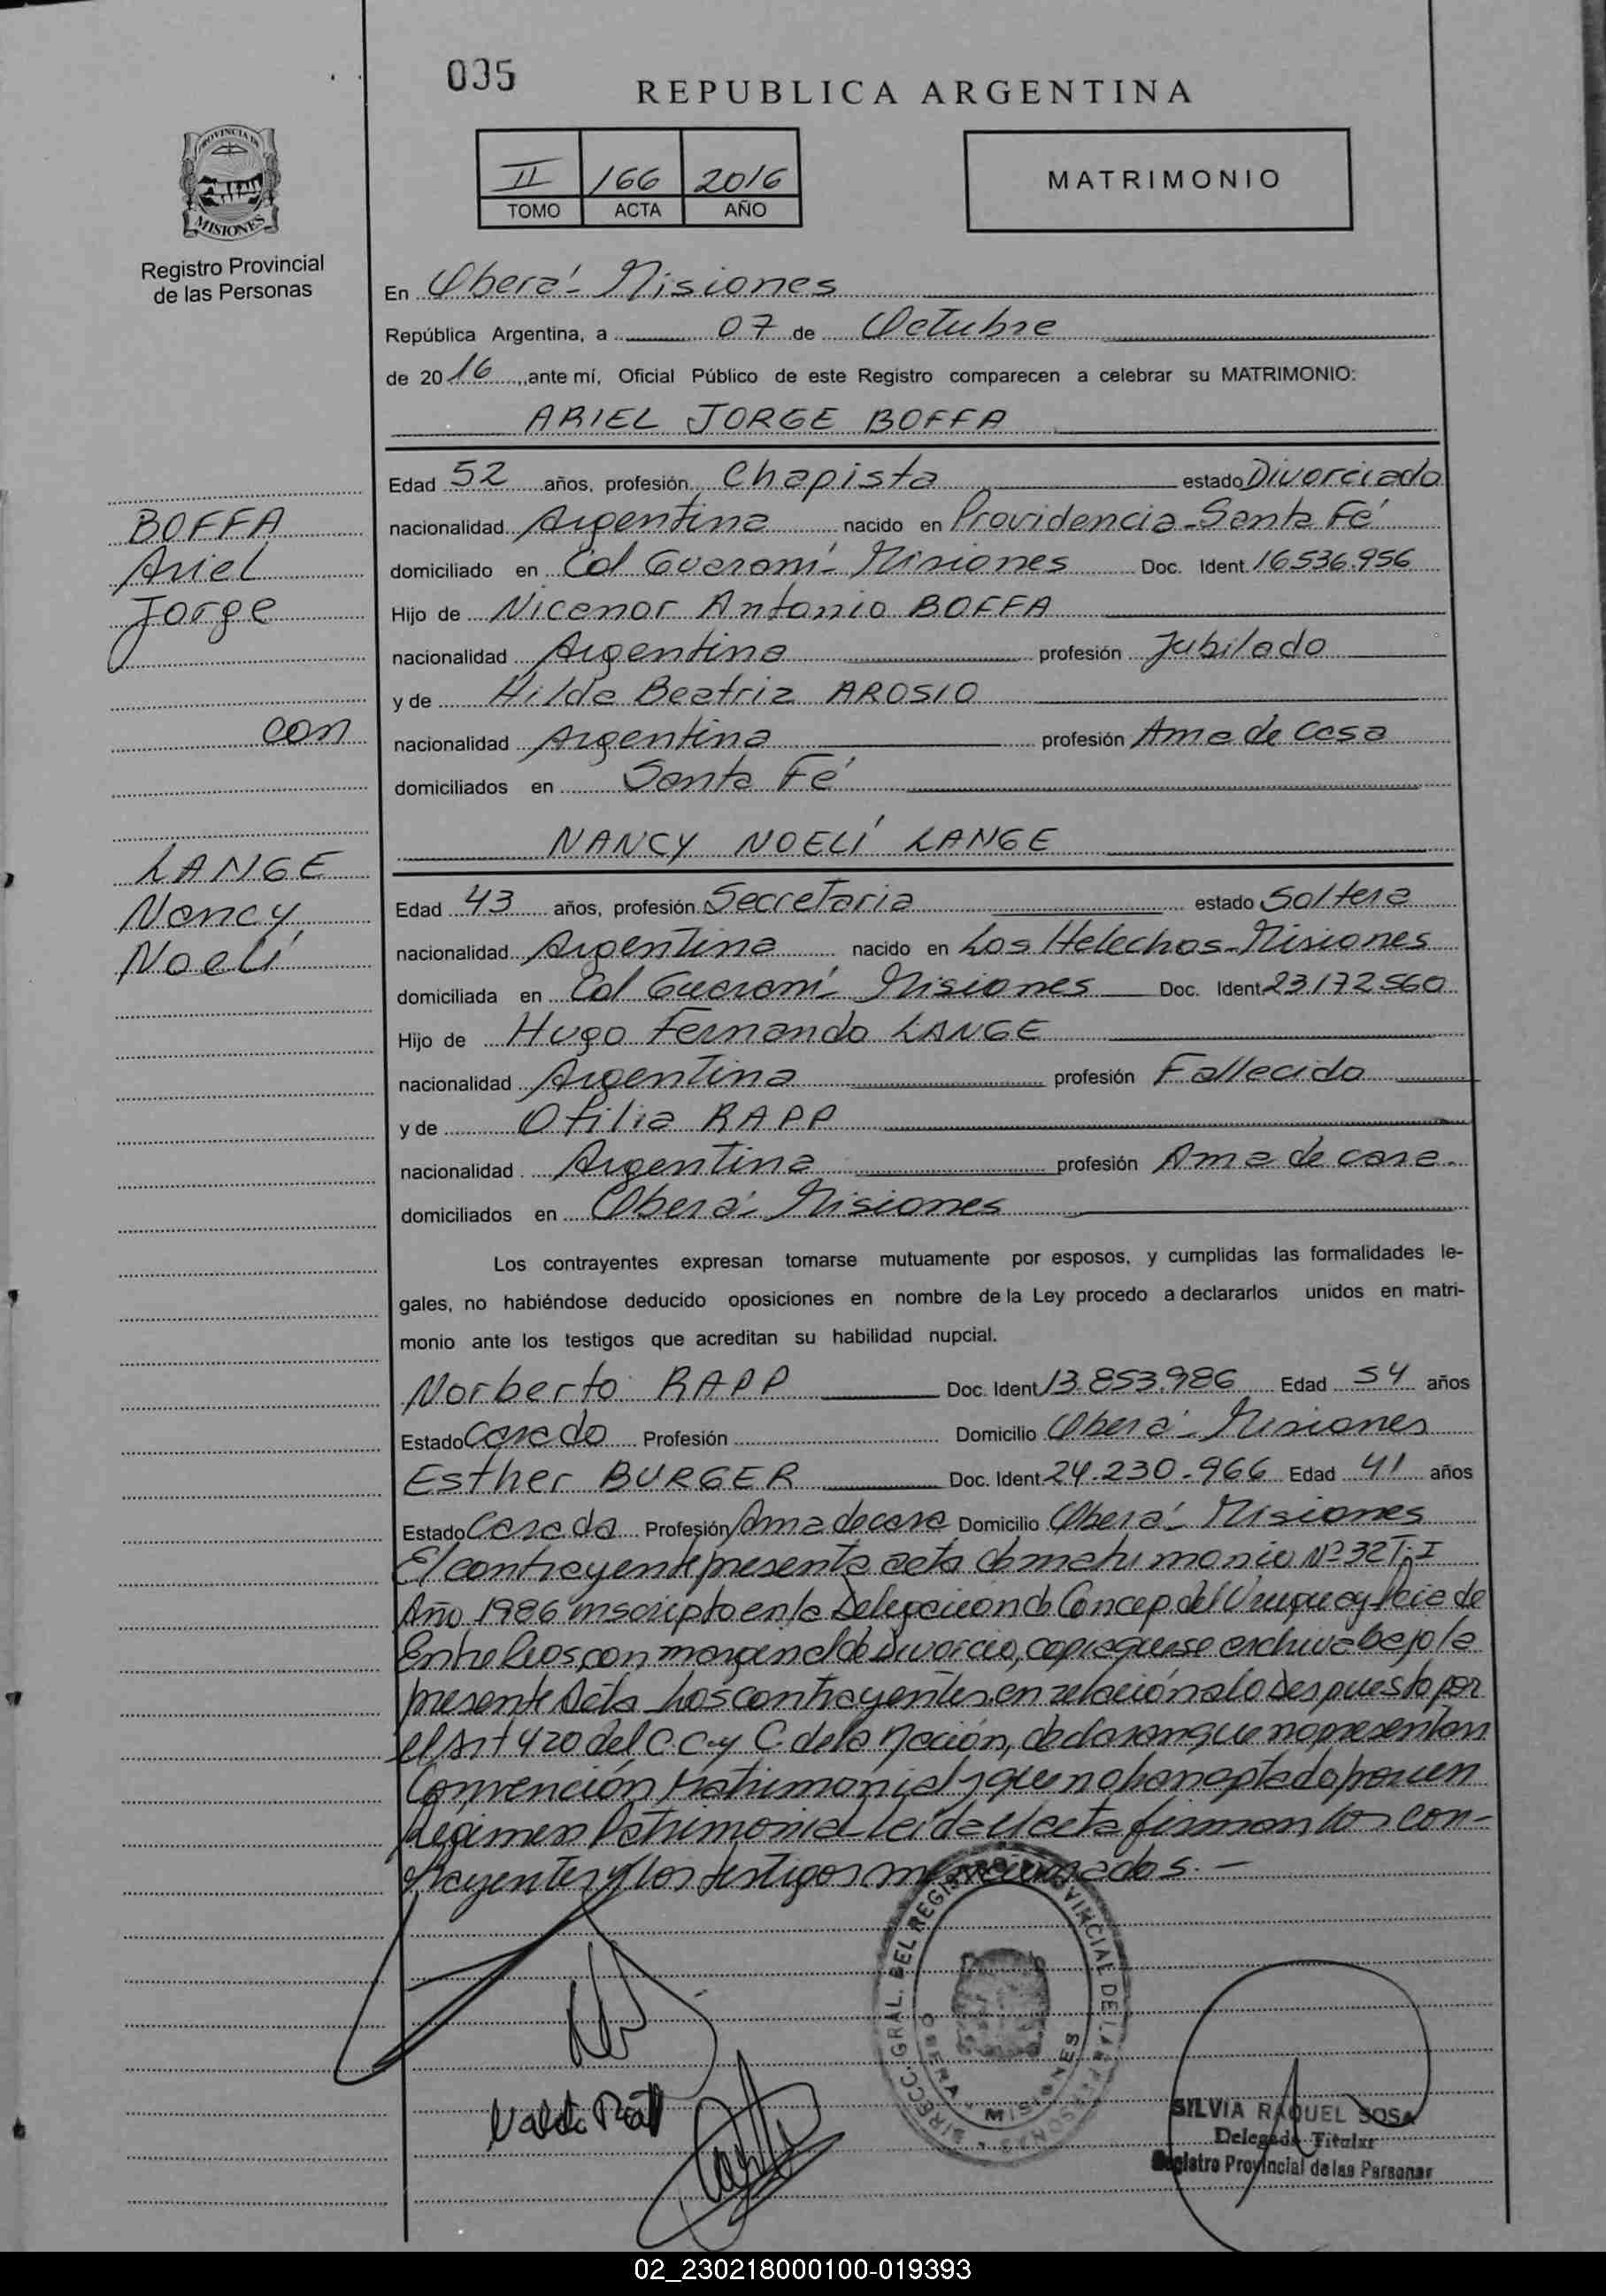 035
REPUBLICA ARGENTINA
PROVINCIA DE
MISIONES
Registro Provincial
de las Personas
II 166 2016
TOMO ACTA AÑO
MATRIMONIO
En Oberá - Misiones
República Argentina, a 07 de Octubre
de 2016, ante mí, Oficial Público de este Registro comparecen a celebrar su MATRIMONIO:
ARIEL JORGE BOFFA
BOFFA
Ariel
Jorge
con
LANGE
Nancy
Noelí
Edad 52 años, profesión Chapista estado Divorciado
nacionalidad Argentina nacido en Providencia - Santa Fé
domiciliado en Col Guaraní - Misiones Doc. Ident. 16.536.956
Hijo de Nicanor Antonio BOFFA
nacionalidad Argentina profesión Jubilado
y de Hilda Beatriz AROSIO
nacionalidad Argentina profesión Ama de Casa
domiciliados en Santa Fé
NANCY NOELÍ LANGE
Edad 43 años, profesión Secretaria estado Soltera
nacionalidad Argentina nacido en Los Helechos - Misiones
domiciliada en Col Guaraní - Misiones Doc. Ident 23.172.560
Hijo de Hugo Fernando LANGE
nacionalidad Argentina profesión Fallecido
y de Otilia RAPP
nacionalidad Argentina profesión Ama de casa.
domiciliados en Oberá - Misiones
Los contrayentes expresan tomarse mutuamente por esposos, y cumplidas las formalidades le-
gales, no habiéndose deducido oposiciones en nombre de la Ley procedo a declararlos unidos en matri-
monio ante los testigos que acreditan su habilidad nupcial.
Norberto RAPP Doc. Ident 13.853.986 Edad 54 años
Estado Casado Profesión Domicilio Oberá - Misiones
Esther BURGER Doc. Ident 24.230.966 Edad 41 años
Estado Casada Profesión Ama de casa Domicilio Oberá - Misiones
El contrayente presenta acta de matrimonio Nº 32 T: I
Año 1986 inscripto en la Delegación de Concep. del Uruguay Pcia de
Entre Rios, con marginal de Divorcio, copia que se archiva bajo la
presente Acta. Los contrayentes en relación a lo Despuesto por
el Art 420 del C.C. y C. de la Nación, declaran que no presentan
Convención Matrimonial y que no han optado por un
Regimen Patrimonial - Leída el acta firman los con-
trayentes y los testigos mencionados. -
DIRECC. GRAL. DEL REGISTRO PROVINCIAL DE LAS PERSONAS
OBERA - MISIONES
SILVIA RAQUEL SOSA
Delegada Titular
Registro Provincial de las Personas
02_230218000100-019393